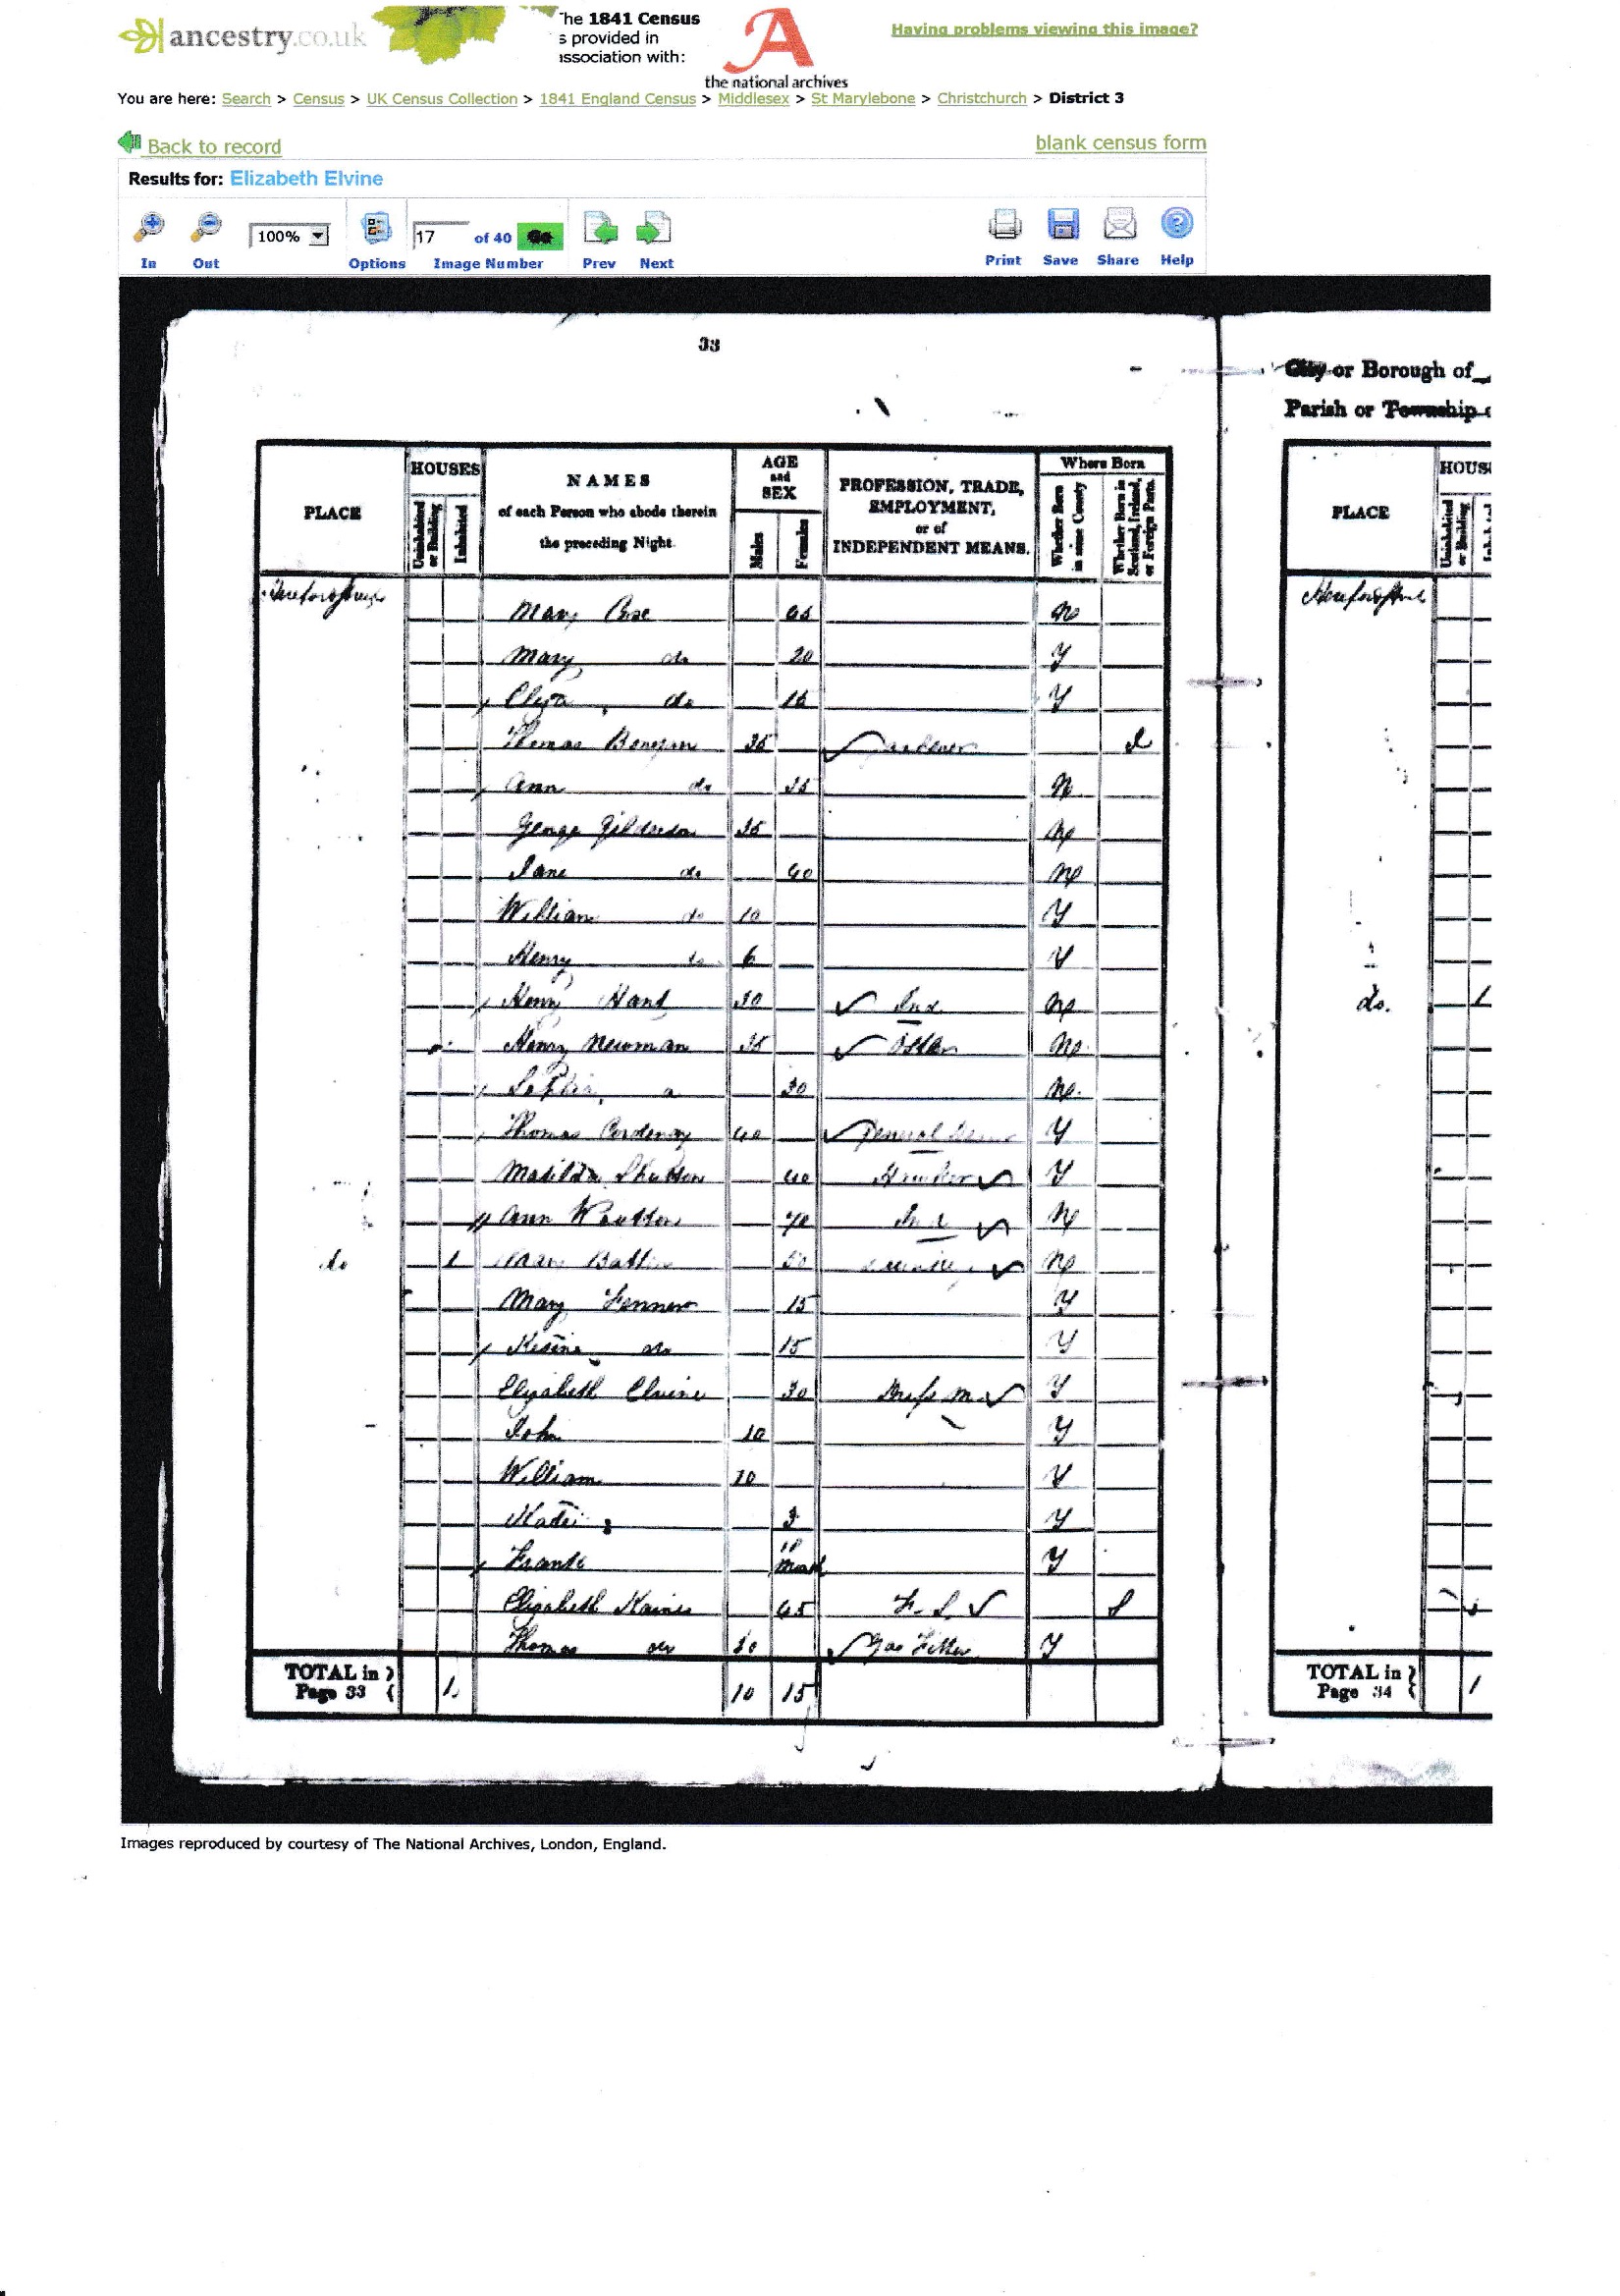 ancestry.co.uk
he 1841 Census
s provided in
association with:
the national archives
Having problems viewing this image?
You are here: Search > Census > UK Census Collection > 1841 England Census > Middlesex > St Marylebone > Christchurch > District 3
Back to record
blank census form
Results for: Elizabeth Elvine
100% 17 of 40 Go
In Out Options Image Number Prev Next Print Save Share Help
33
City or Borough of
Parish or Township
PLACE
HOUSES
Uninhabited or Building
Inhabited
NAMES
of each Person who abode therein
the preceding Night.
AGE
and
SEX
Males
Females
PROFESSION, TRADE,
EMPLOYMENT,
or of
INDEPENDENT MEANS.
Where Born
Whether Born in same County
Whether Born in Scotland, Ireland, or Foreign Parts.
PLACE
HOUS
Uninhabited or Building
Mary 45 No
Mary do 20 Y
Eliza do 15 Y
Thomas 35 Gardener I
Ann do 35 N
George 35 No
Jane do 40 No
William do 10 Y
Henry do 6 Y
Henry Hand 30 Ind No
Henry Newman 35 Ostler No
Sophia 30 No
Thomas 40 Y
Matilda 40 Hawker Y
Ann 70 Ind No
do 1 50 No
Mary Fenner 15 Y
do 15 Y
Elizabeth Elvine 30 Dress M Y
John 10 Y
William 10 Y
3 Y
Frank 10 Month Y
Elizabeth Kaines 65 F. S. I
Thomas do 30 Gas Fitter Y
do. 1
TOTAL in
Page 33
1 10 15
TOTAL in
Page 34
1
Images reproduced by courtesy of The National Archives, London, England.